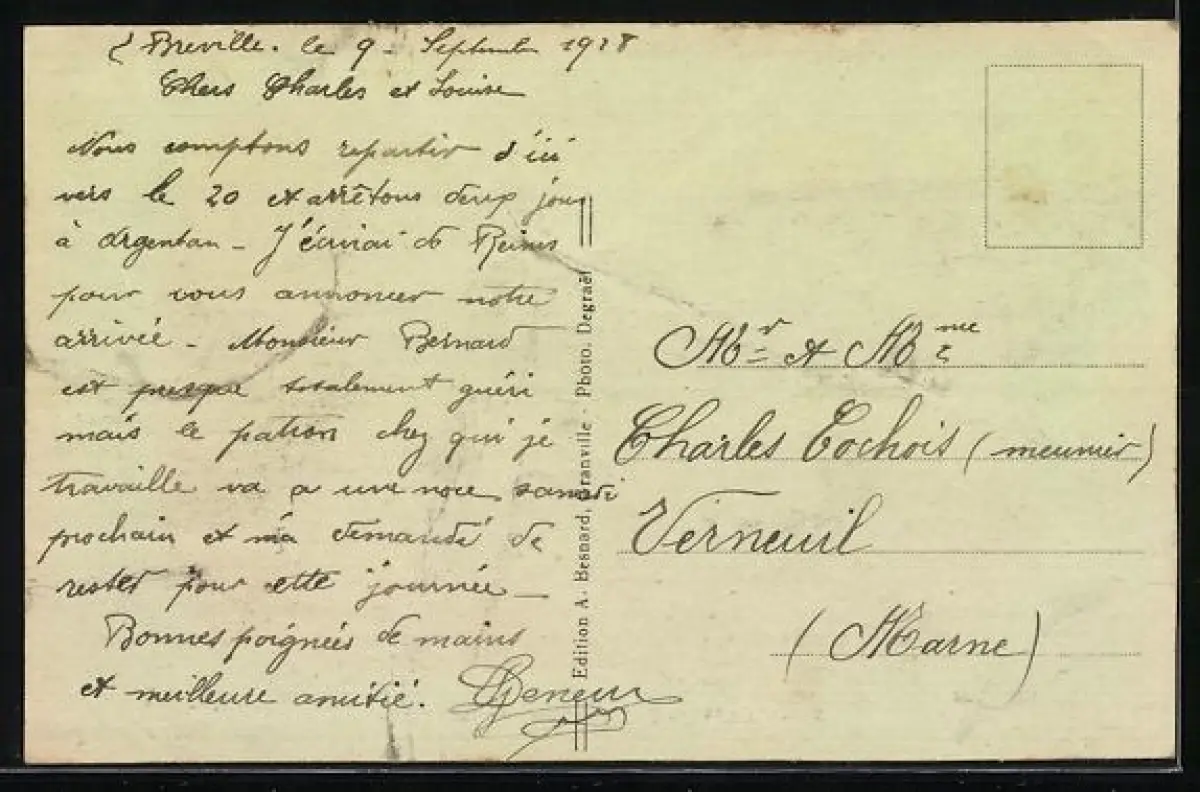 Breville. le 9 - Septembre 19
Chers Charles et Louise
Nous comptons repartir d'ici
vers le 20 et arrêtons deux jours
à Argentan - J'écrirai de Reims
pour vous annoncer notre
arrivée - Monsieur Bernard
est presque totalement guéri
mais le patron chez qui je
travaille va a une noce samedi
prochain et m'a demandé de
rester pour cette journée -
Bonnes poignées de mains
et meilleure amitié.
Edition A. Besnard, Granville - Photo. Degraël
Mr et Mme
Charles Cochois (meunier)
Verneuil
(Marne)